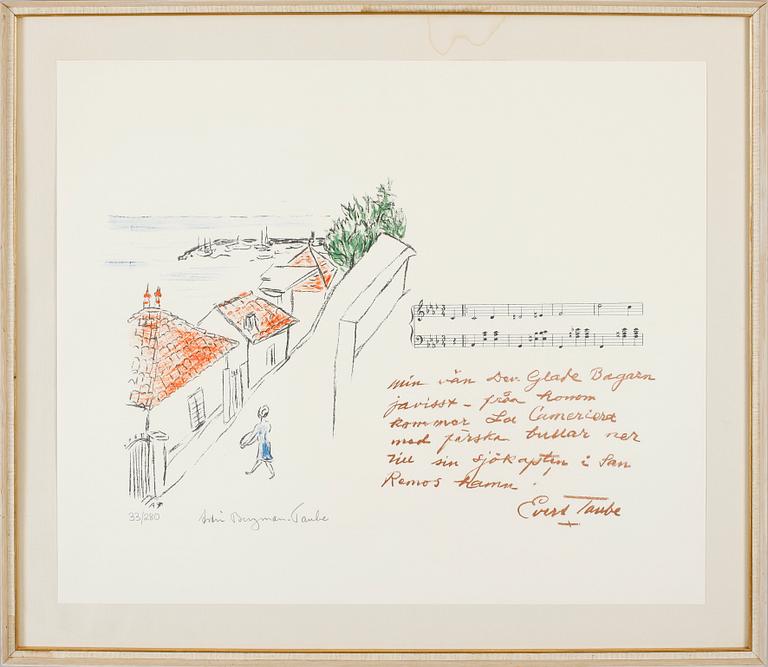 min vän Den Glade Bagarn
javisst – från honom
kommer La Cameriera
med färska bullar ner
till sin sjökapten i San
Remos hamn.
Evert Taube
33/280 Astri Bergman-Taube
AT